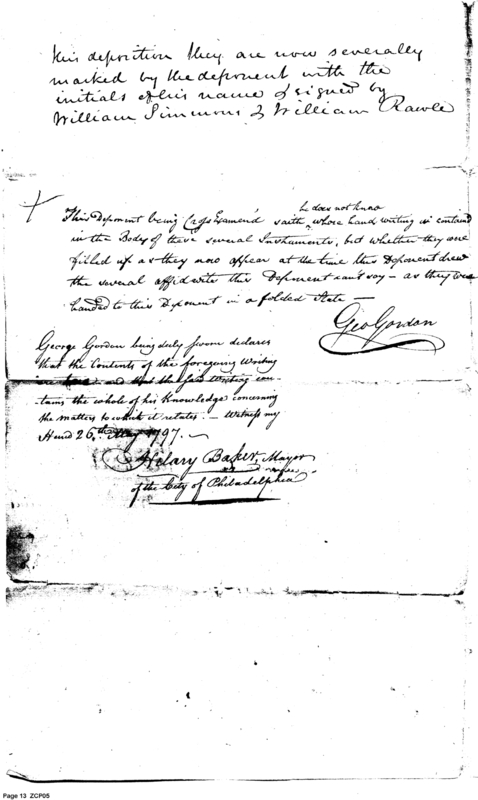 this deposition they are now severally
marked by the deponent with the
initials of his name & signed by
William Simmons & William Rawle
he does not know
This Deponent being Cross Examen'd saith whose hand writing is contained
in the Body of these several Instruments, but whether they were
filled up as they now appear at the time this Deponent drew
the several affidavits this Deponent can't say — as they were
handed to this Deponent in a folded State —
Geo Gordon
George Gordon being duly sworn declares
that the Contents of the foregoing Writing
are true and that the said Writing con-
tains the whole of his Knowledge concerning
the matters to which it relates. — Witness my
Hand 26th May 1797. —
Hilary Baker, Mayor
of the City of Philadelphia
Page 13 ZCP05